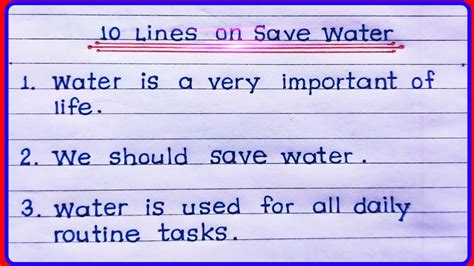 10 Lines on Save Water
1. Water is a very important of
life.
2. We should save water.
3. Water is used for all daily
routine tasks.